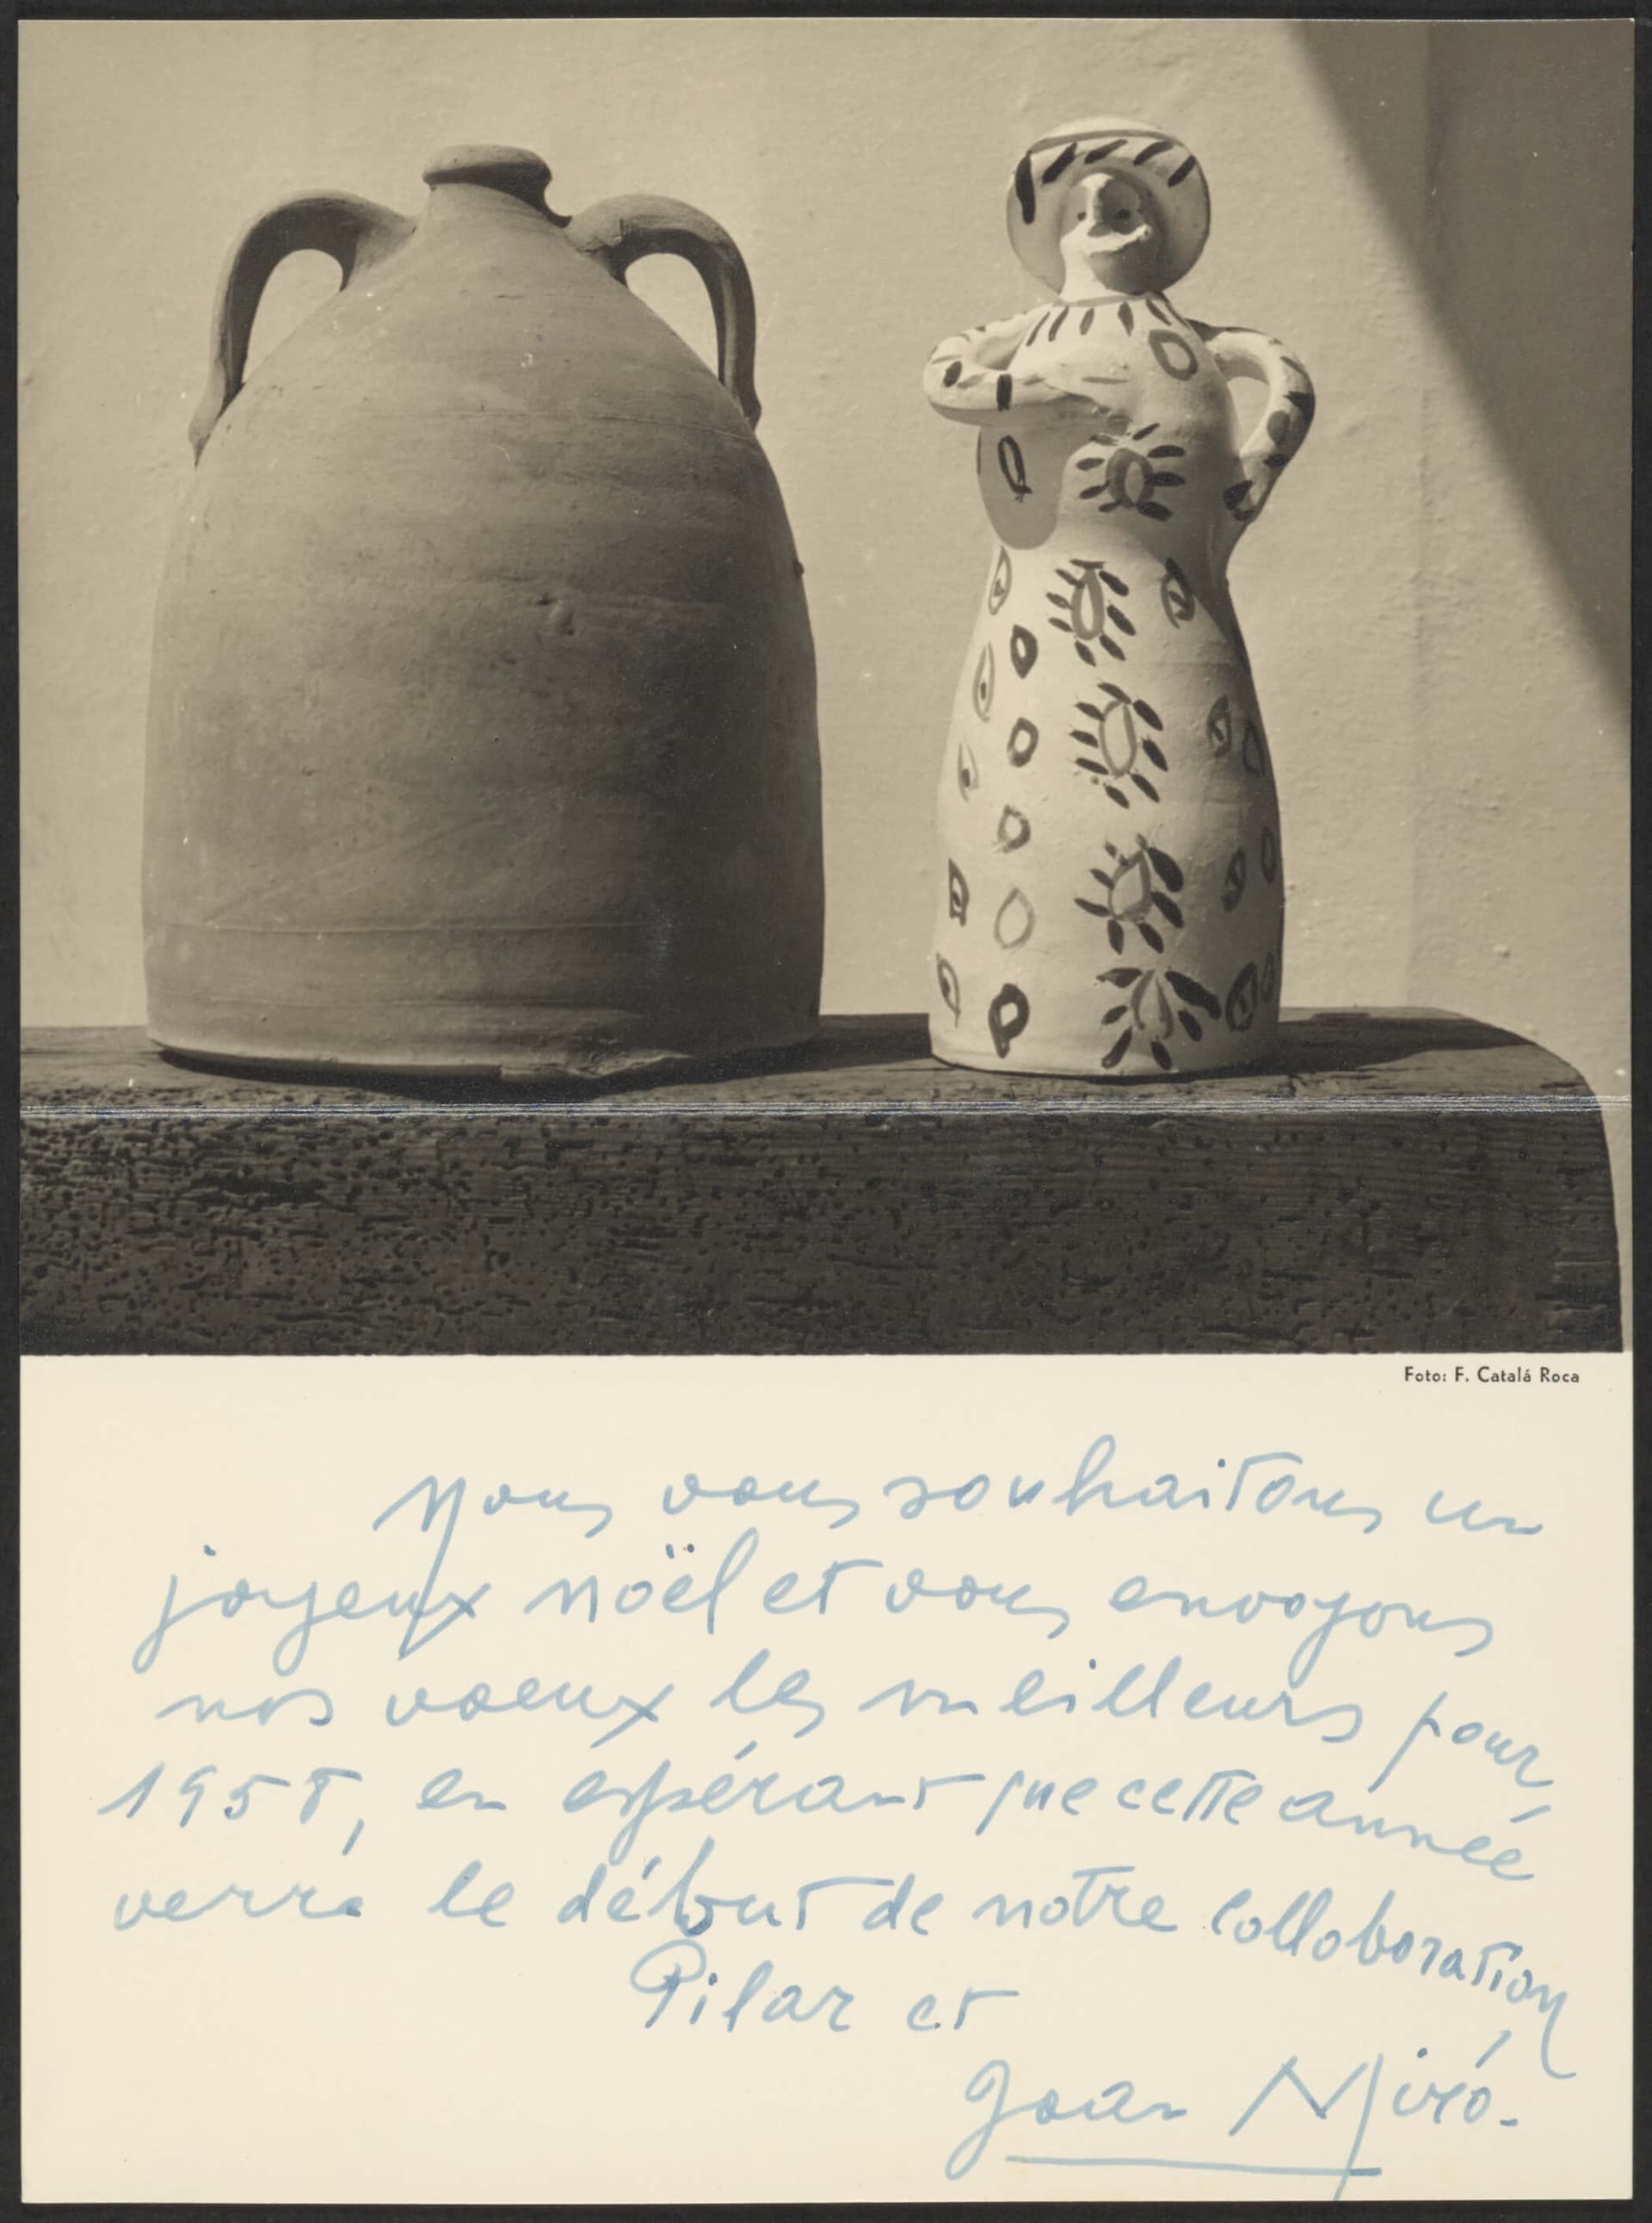 Foto: F. Catalá Roca
Nous vous souhaitons un
joyeux noël et vous envoyons
nos voeux les meilleurs pour
1958, en espérant que cette année
verra le début de notre colloboration
Pilar et
Joan Miró.